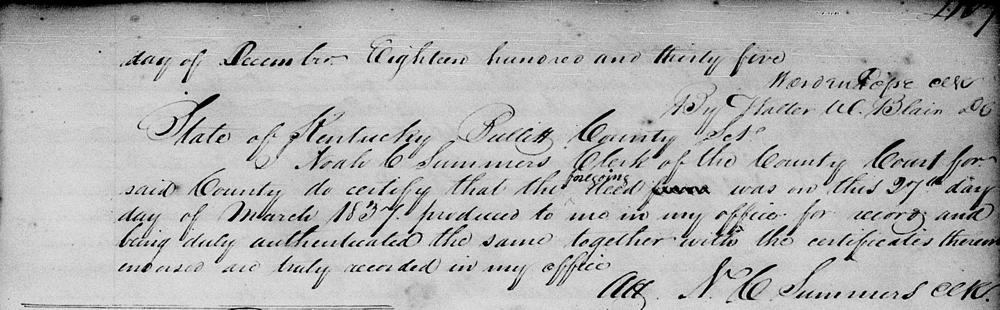 day of December Eighteen hundred and thirty five
Worden Pope Clk
By Walter C. Blair DC
State of Kentucky Bullitt County Sct
Noah C Summers Clerk of the County Court for
said County do certify that the foregoing deed was on this 27th day
day of March 1837. produced to me in my office for record and
being duly authenticated the same together with the certificates thereon
endorsed are truly recorded in my office
Att N. C Summers Clk.